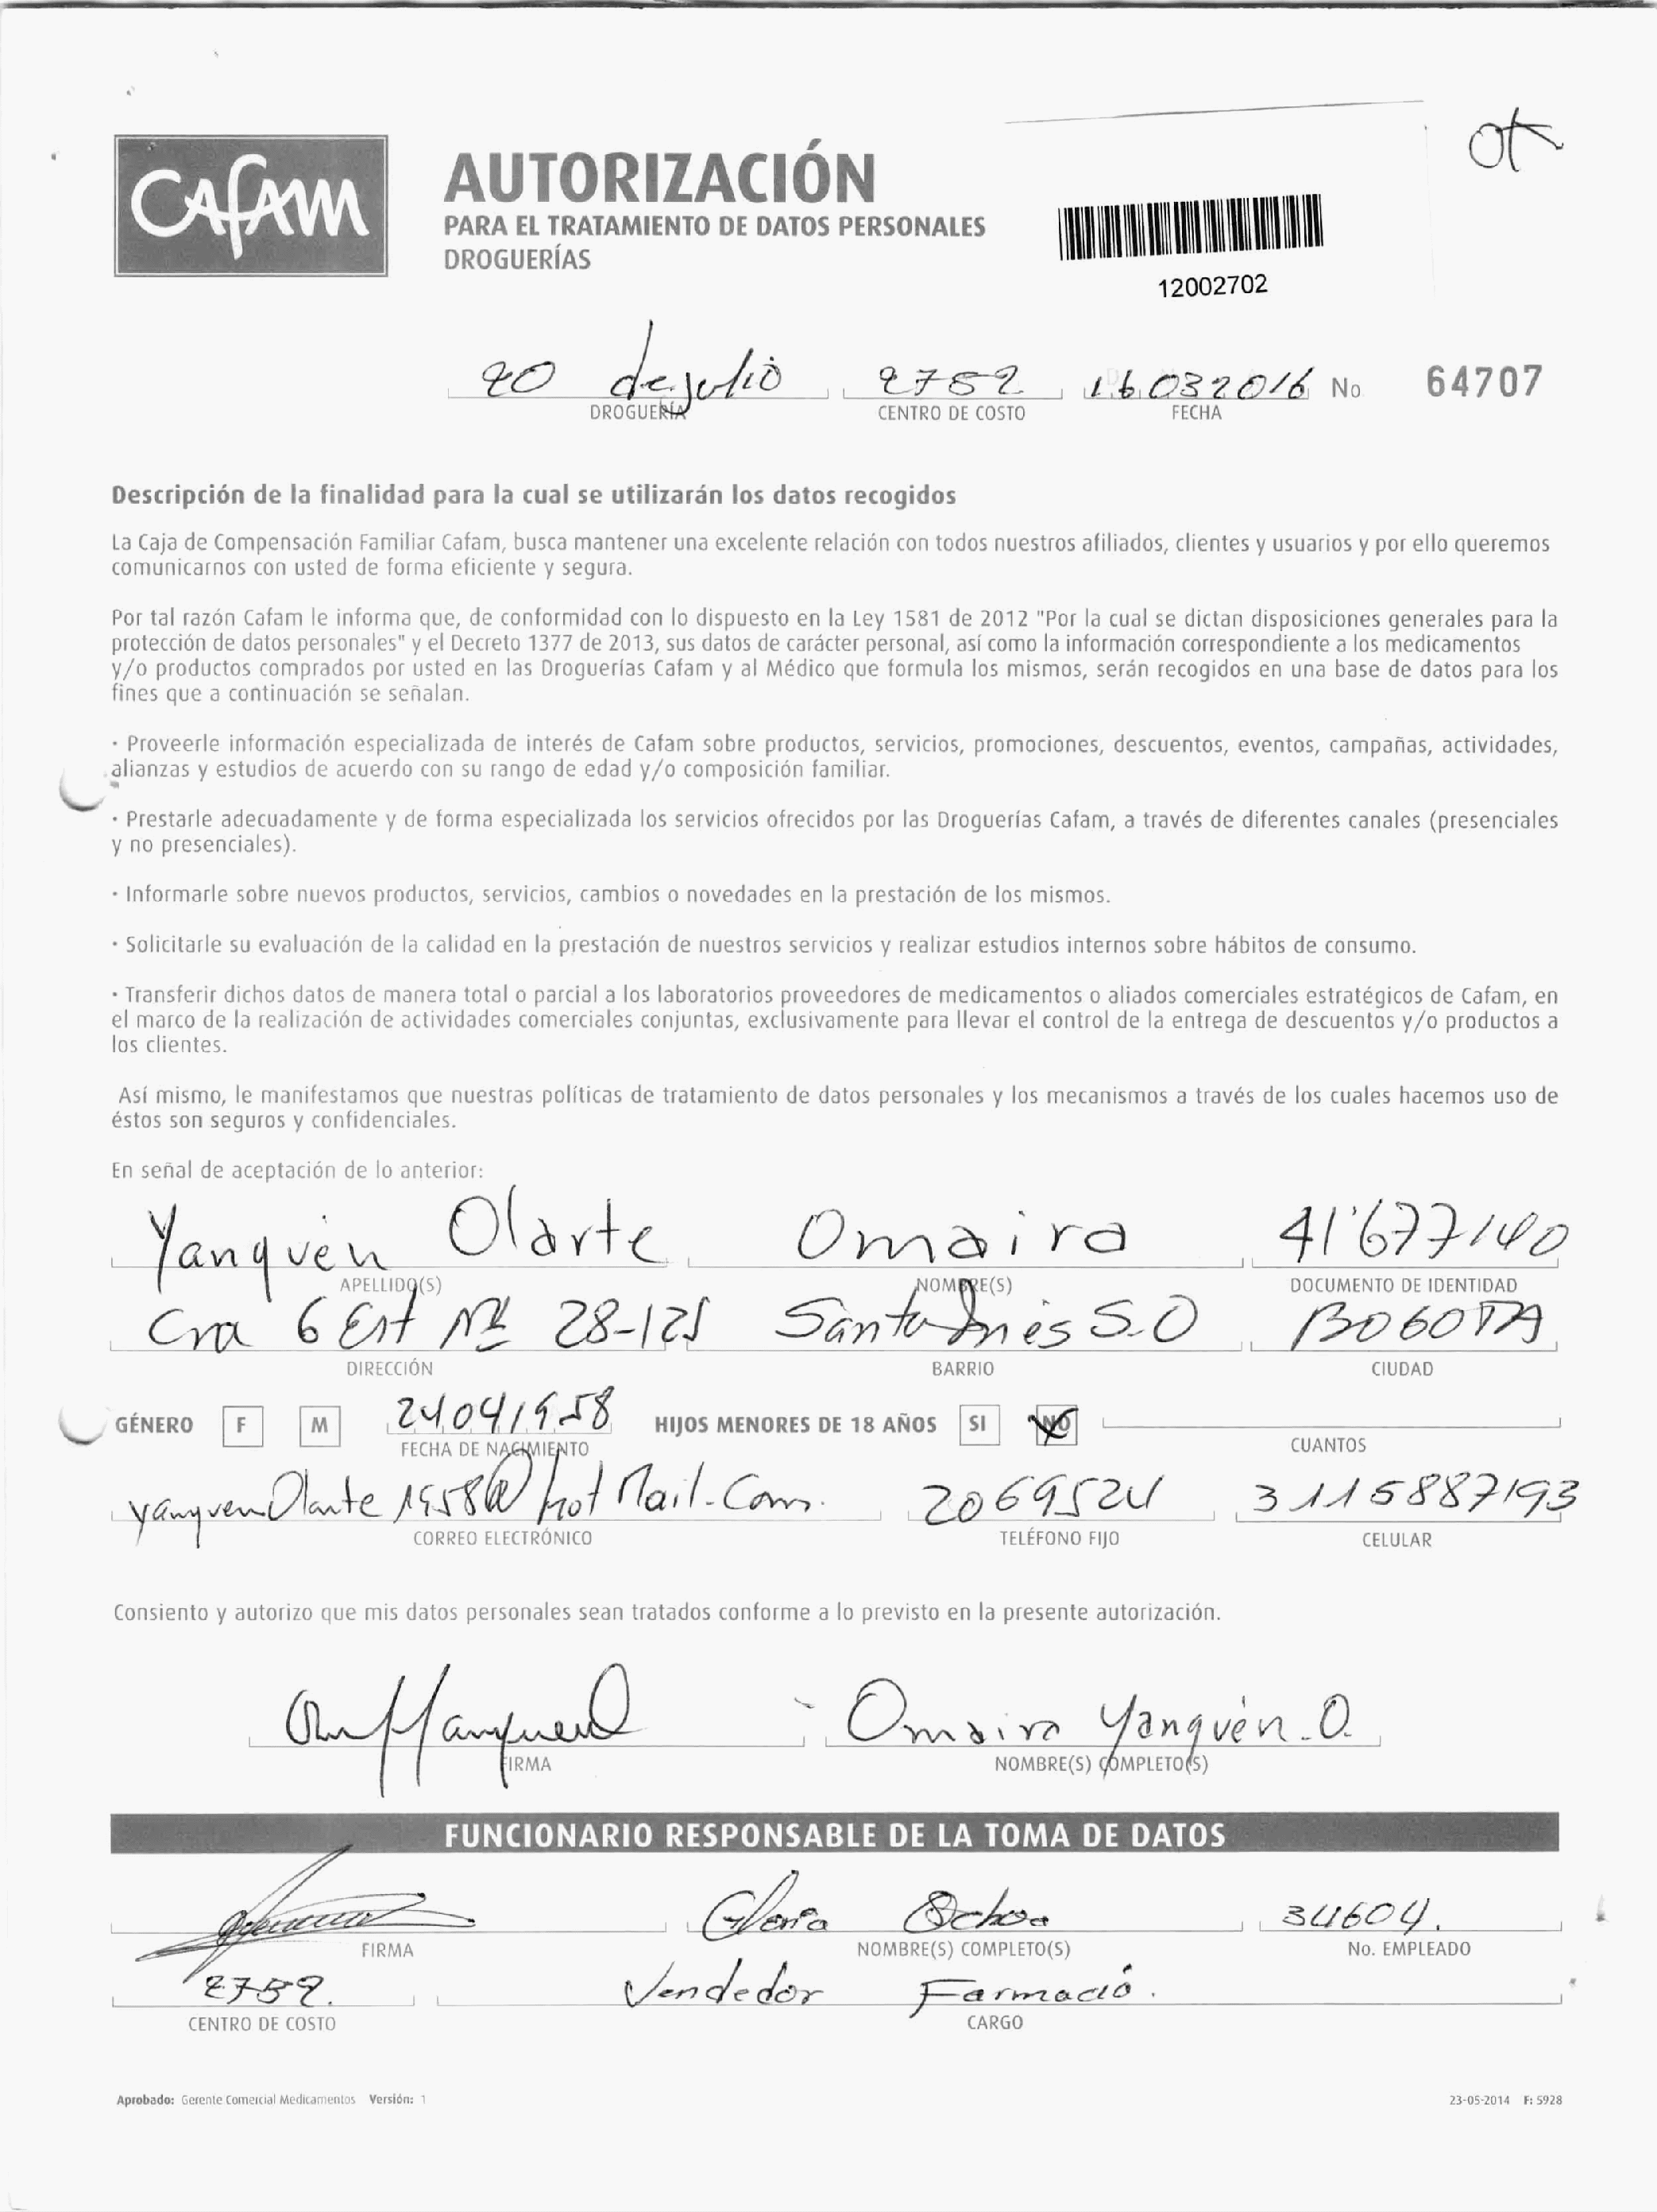 OK
CAFAM
AUTORIZACIÓN
PARA EL TRATAMIENTO DE DATOS PERSONALES
DROGUERÍAS
12002702
20 de julio 2752 16032016 No. 64707
DROGUERÍA CENTRO DE COSTO FECHA
Descripción de la finalidad para la cual se utilizarán los datos recogidos
La Caja de Compensación Familiar Cafam, busca mantener una excelente relación con todos nuestros afiliados, clientes y usuarios y por ello queremos
comunicarnos con usted de forma eficiente y segura.
Por tal razón Cafam le informa que, de conformidad con lo dispuesto en la Ley 1581 de 2012 "Por la cual se dictan disposiciones generales para la
protección de datos personales" y el Decreto 1377 de 2013, sus datos de carácter personal, así como la información correspondiente a los medicamentos
y/o productos comprados por usted en las Droguerías Cafam y al Médico que formula los mismos, serán recogidos en una base de datos para los
fines que a continuación se señalan.
· Proveerle información especializada de interés de Cafam sobre productos, servicios, promociones, descuentos, eventos, campañas, actividades,
alianzas y estudios de acuerdo con su rango de edad y/o composición familiar.
· Prestarle adecuadamente y de forma especializada los servicios ofrecidos por las Droguerías Cafam, a través de diferentes canales (presenciales
y no presenciales).
· Informarle sobre nuevos productos, servicios, cambios o novedades en la prestación de los mismos.
· Solicitarle su evaluación de la calidad en la prestación de nuestros servicios y realizar estudios internos sobre hábitos de consumo.
· Transferir dichos datos de manera total o parcial a los laboratorios proveedores de medicamentos o aliados comerciales estratégicos de Cafam, en
el marco de la realización de actividades comerciales conjuntas, exclusivamente para llevar el control de la entrega de descuentos y/o productos a
los clientes.
Así mismo, le manifestamos que nuestras políticas de tratamiento de datos personales y los mecanismos a través de los cuales hacemos uso de
éstos son seguros y confidenciales.
En señal de aceptación de lo anterior:
Yanquén Olarte Omaira 41'677140
APELLIDO(S) NOMBRE(S) DOCUMENTO DE IDENTIDAD
Cra 6 Est Nº 28-125 Santa Inés S.O BOGOTA
DIRECCIÓN BARRIO CIUDAD
GÉNERO F M 24041958 HIJOS MENORES DE 18 AÑOS SI NO
FECHA DE NACIMIENTO CUANTOS
yanquenOlarte1958@hotMail.Com. 2069524 3115887193
CORREO ELECTRÓNICO TELÉFONO FIJO CELULAR
Consiento y autorizo que mis datos personales sean tratados conforme a lo previsto en la presente autorización.
Omaira Yanquén.O.
FIRMA NOMBRE(S) COMPLETO(S)
FUNCIONARIO RESPONSABLE DE LA TOMA DE DATOS
Gloria Ochoa 34604.
FIRMA NOMBRE(S) COMPLETO(S) No. EMPLEADO
2752. Vendedor Farmacia.
CENTRO DE COSTO CARGO
Aprobado: Gerente Comercial Medicamentos Versión: 1 23-05-2014 F: 5928